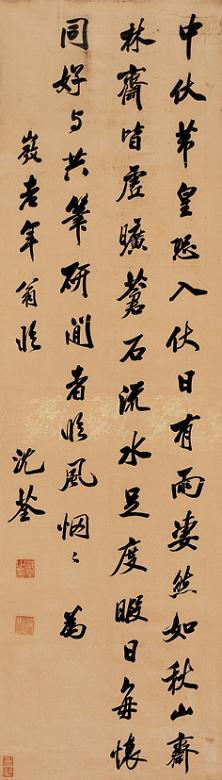 中伏苇皇恐入伏日有雨凄然如秋山斋
林斋皆虚旷苍石流水足度暇日每怀
同好与共笔研间者临风惘〻为
严老年翁临
沈荃